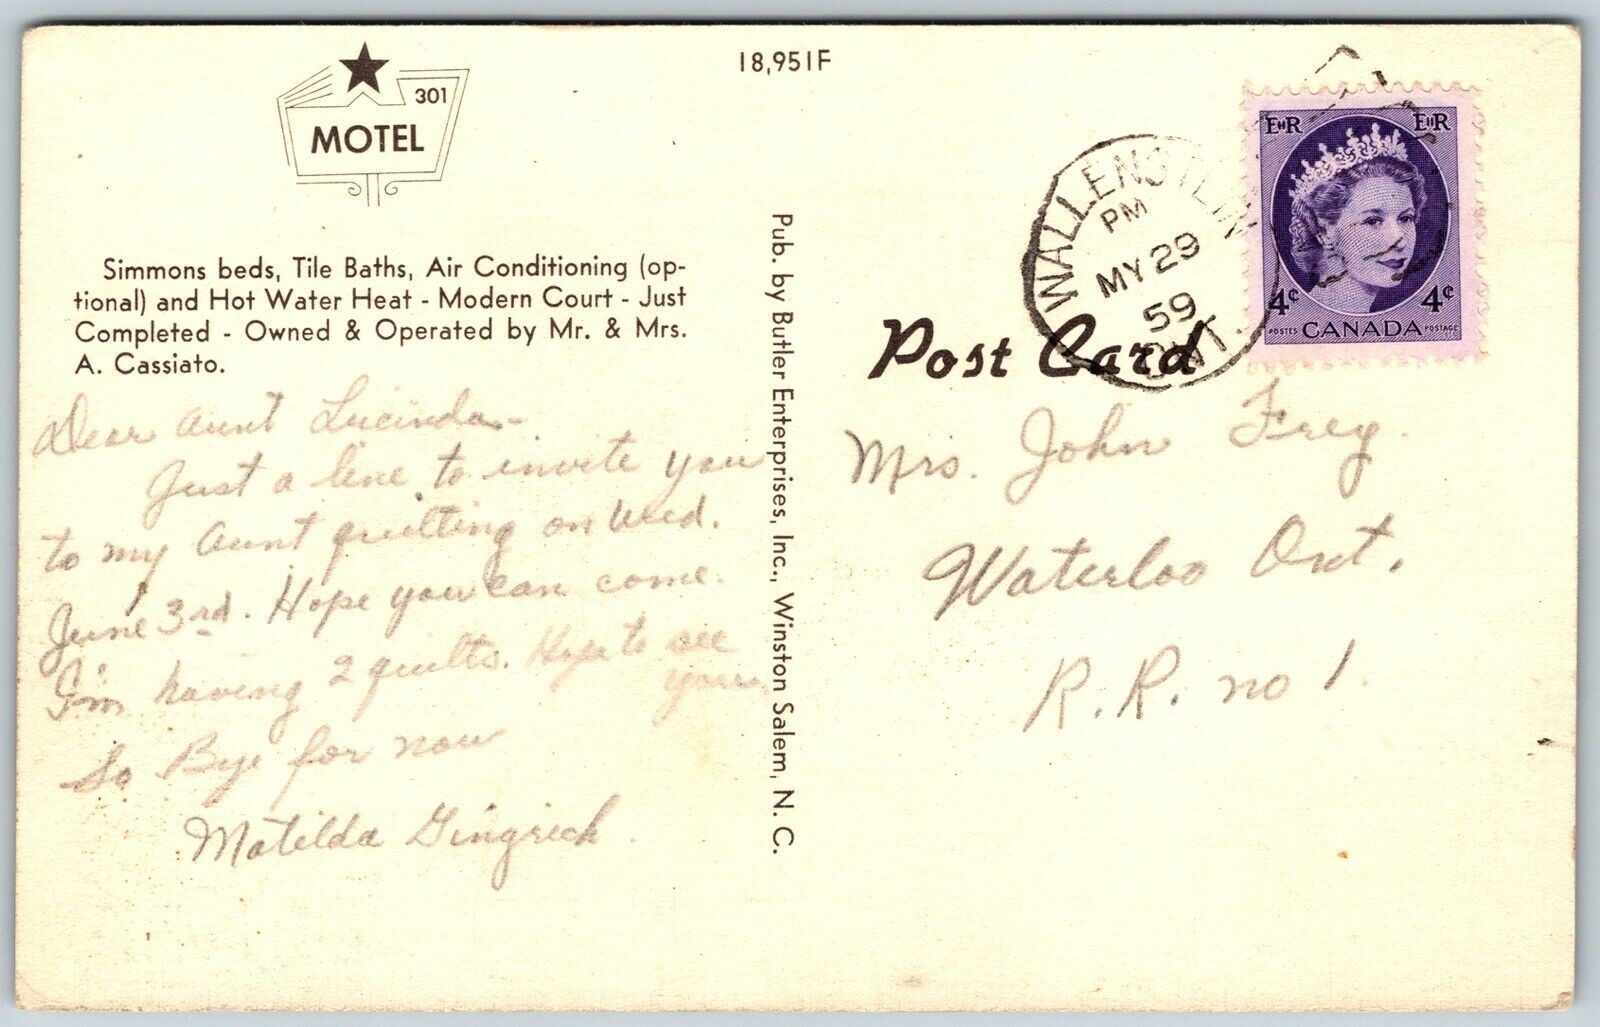 301
MOTEL
18,951F
Simmons beds, Tile Baths, Air Conditioning (op-
tional) and Hot Water Heat - Modern Court - Just
Completed - Owned & Operated by Mr. & Mrs.
A. Cassiato.
Dear Aunt Lucinda-
Just a line to invite you
to my Aunt quilting on Wed.
June 3rd. Hope you can come.
I'm having 2 quilts. Hope to see
you.
So Bye for now
Matilda Gingrich.
Pub. by Butler Enterprises, Inc., Winston Salem, N. C.
WALLENSTEIN
PM
MY 29
59
ONT.
EIIR EIIR
4¢ 4¢
POSTES CANADA POSTAGE
Post Card
Mrs. John Frey.
Waterloo Ont.
R.R. no 1.